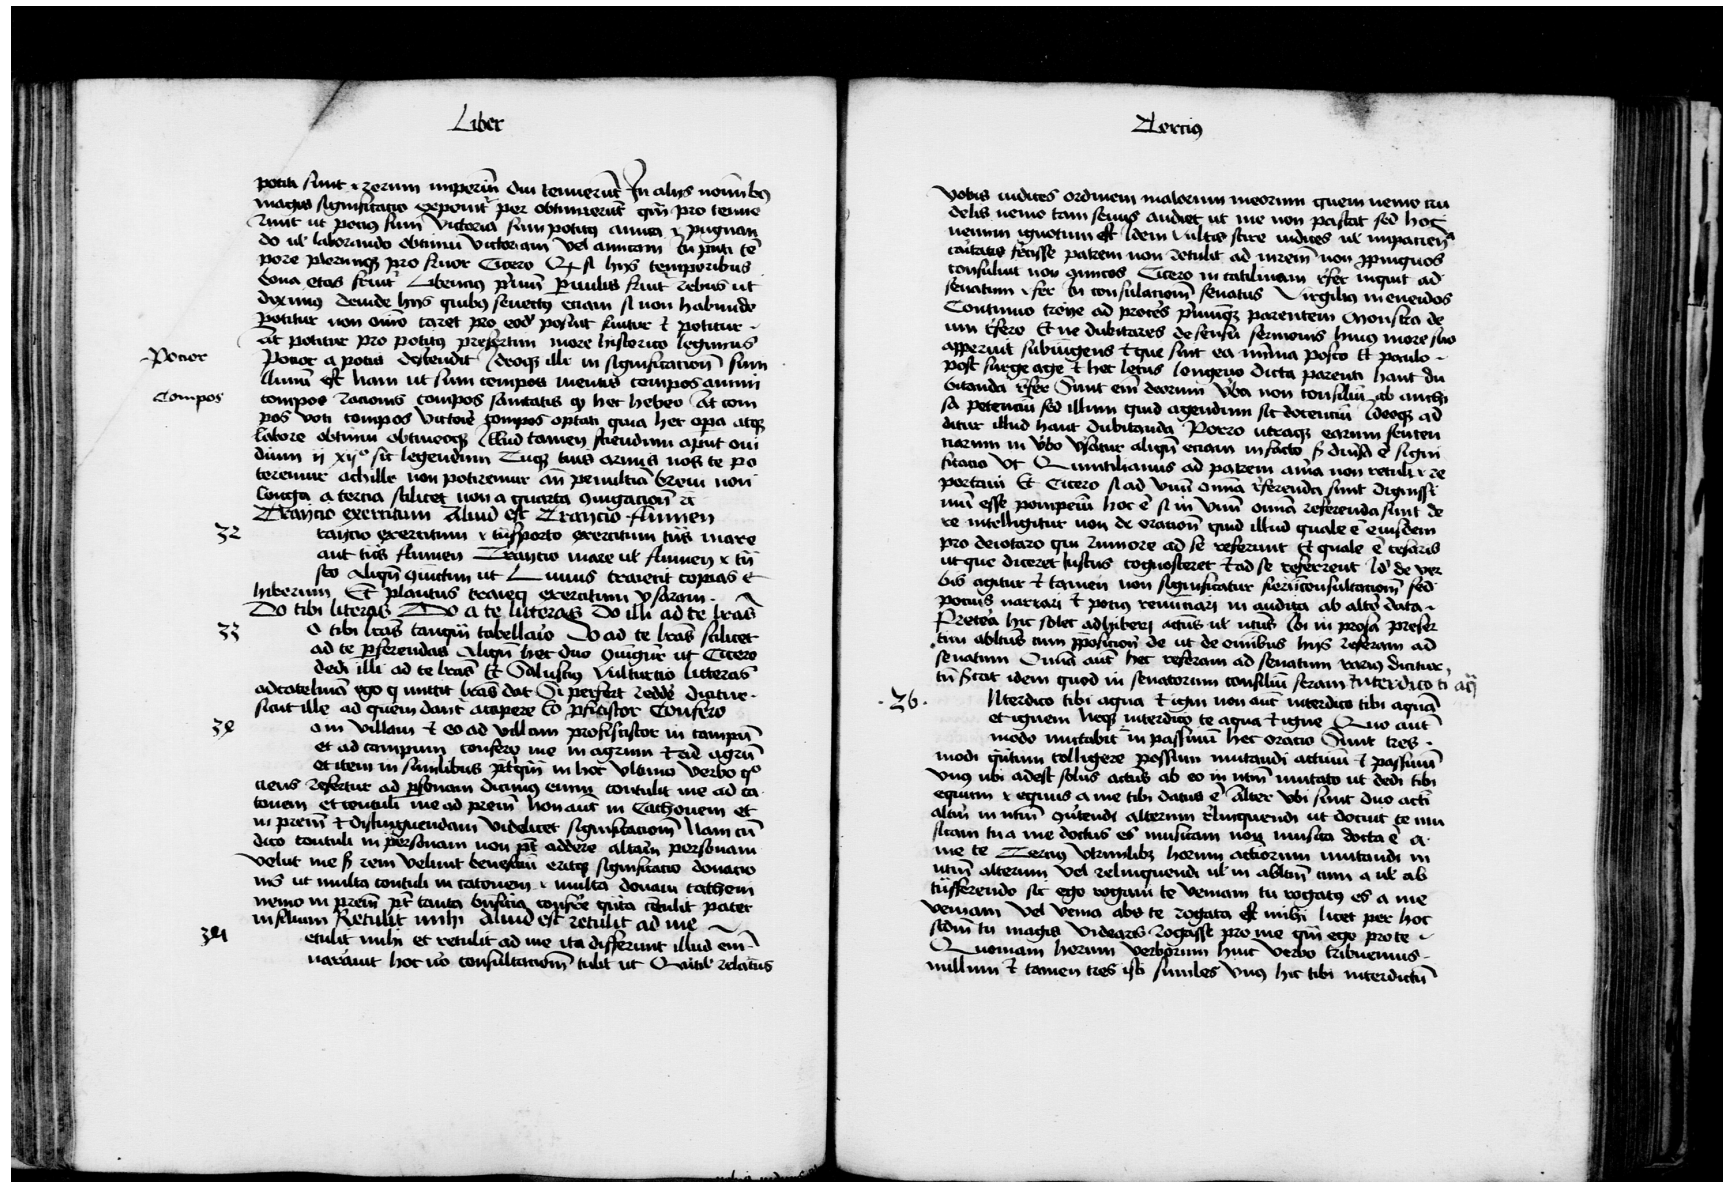 Liber
potiti sunt ⁊ rerum imperiū diu tenuerūt In alijs nominibꝰ
magis significatio exponit᷑ per obtinuerūt qm̄ pro tenue
runt ut potitꝰ sum victoria sum potitus amica ⁊ pugnan
do ul̓ laborando obtinui victoriam vel amicam
pore plerunqꝫ pro fruor Cicero Qꝫ si hijs temporibus
bona etas fruit᷑ Libencius pͥmū puulis fruit᷑ rebus ut
diximus deinde hijs quibus senectus eciam si non habunde
potitur non omīo caret pro eodē posuit fruitur et potitur
At potitur pro potitus presertim more historico legimus
Potior
Potior a potis descendit Ideoqꝫ ille in significacionē sum
Illimū est nam ut sum compos mentis compos animi
Compos
compos racionis compos sanitatis qꝫ hec habeo At com
pos voti compos victorie compos optati quia hec opera atqꝫ
labore obtinui obtineoqꝫ Illud tamen sciendum aput oui
dium ij xijº sic legendum Tuqꝫ tuis armis nos te po
teremur achille non potiremur an̄ penultia breui non
longa a tercia scilicet non a quarta ꝯiugacionē
Traiicio exercitum Aliud est Traiicio flumen
32
raijcio exercitum ⁊ trāsporto exercitum trās mare
aut trās flumen Traijcio mare ul̓ flumen ⁊ trā
seo Aliqn̄ ꝯiunctim ut Liuius traiecit copias
hiberum Et plautus traieci exercitum
Do tibi literas Do a te litteras Do illi ad te lr̄as
33
O tibi lr̄as tanqꝫ tabellario Do ad te lr̄as scilicet
ad te pferendas Aliqn̄ hec duo ꝯiungūt᷑ ut Cicero
dedi illi ad te lr̄as Et Salustius Vulturcio litteras
ad catelinā ego q̄ mittit lr̄as dat Qui perfert reddē dicitur
sicut ille ad quem dant᷑ accipere Eo pficiscor Confero
34
am villam et eo ad villam proficiscor in campū
et ad campum confero me in agrum et ad agrū
et item in similibus
ciens refertur ad psonam dicimus enim contulit me ad ca
tonem et contuli me ad prem̄ non aut̄ in Cathonem et
in prem̄ et distinguendam videlicet significacionē Nam cū
dico contuli in personam non pt̄ addere altam personam
velut me sꝫ rem velut beneficiū eritqꝫ significatio donacio
nis ut multa contuli in catonem ⁊ multa donaui cathoni
nemo in prem̄ pt̄ tanta bn̄ficia conferre quāta cōtulit pater
in filium Retulit mihi Aliud est retulit ad me
etulit mihi et retulit ad me ita differunt illud em̄
narauit hoc u̓o consultacionē tulit ut relaturus
Tercius
vobis iudices ordinem malorum meorum quem nemo cru
delis nemo tam seuus audiet ut me non pascat sed hoc
nemini ignotum est Idem Vultis scire iudices ul̓ impacien
caritatis fecisse patrem non retulit ad me non ꝓpinquos
consuluit non amicos Cicero in catilinam refer inquit ad
senatum refer In consulacionē senatus Virgilius in eneidos
Continuo troye ad proceres pͥmūqꝫ parentem Monstra de
um refero Et ne dubitares de sensu sermonis huius more suo
apperuit subiungens et que sint ea numina posco Et paulo
post surge age et hec letus longeuo dicta parenti haut du
bitanda refer Sunt em̄ deorum v̓ba non consiliū ab anchi
sa petenciū sed illum quid agendum sit docenciū Ideoqꝫ ad
ditur illud haut dubitanda Porro utraqꝫ earum senten
tiarum in v̓bo vsatur aliqn̄ eciam in facto sꝫ diu̓sa ē signi
ficatio Ut Quintilianus ad patrem arma non retuli ⁊ re
portaui Et Cicero si ad vnū omnia referenda sunt digniss
mū esse pompeiū hoc ē si in vnū omnia referenda sunt de
re intelligitur non de orationē quid illud quale ē eiusdem
pro deiotaro qui rumore ad se referunt Et quale ē cesaris
ut que diceret Iustus cognosceret et ad se referrent Id de ver
bis agitur et tamen non significatur fieri consultacionē sed
pocius narrari et potiꝰ renunciari in audita ab altō data
Preterea hic solet adhiberi actus ul̓ ntūs Ibi in prosa preser
tim abltūs cum pposicionē de ut de omibus hijs referam ad
senatum Omnia aut̄ hec referam ad senatum rarius dicitur
idem quod in senatorum consiliū feram Interdico tͥ aq̄
.36.
Nterdico tibi aqua et igni non aut̄ interdico tibi aquā
et ignem Neqꝫ interdico te aqua et igne Quo aut̄
modo mutabit᷑ in passiuū hec oracio Sunt tres
modi qn̄tum colligere possum mutandi actiuū et passiuū
vnꝰ ubi adest solus actūs ab eo in ntm̄ mutato ut dedi tibi
equum ⁊ equus a me tibi datus ē Alter vbi sunt duo acti
altū in ntm̄ vertendi alterum relinquendi ut docui te mu
sicam tu a me doctus es musicam non musica docta ē a
me te Tercius utrumlibꝫ horum actiuorum mutandi in
ntm̄ alterum vel relinquendi ul̓ in abltm̄ cum a ul̓ ab
trāsferendo sic ego rogaui te veniam tu rogatꝰ es a me
veniam vel venia abs te rogata est mihi licet per hoc
scdm̄ tu magis videaris rogasse pro me qm̄ ego pro te
Quoniam horum verborum huic verbo tribuemus
nullum et tamen tres isti similes vnꝰ hic tibi interdictū